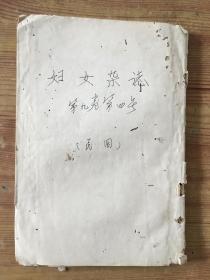 妇女杂志
第九卷第四号
（民国）